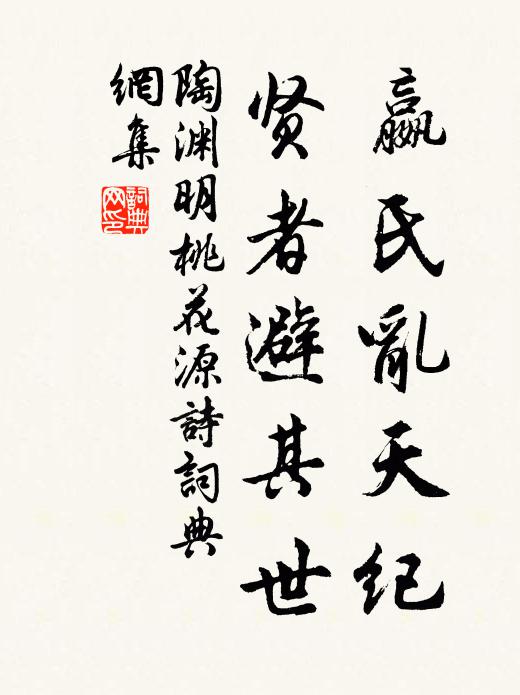 嬴氏亂天纪
贤者避其世
陶渊明桃花源詩詞典
網集
詞典
网印